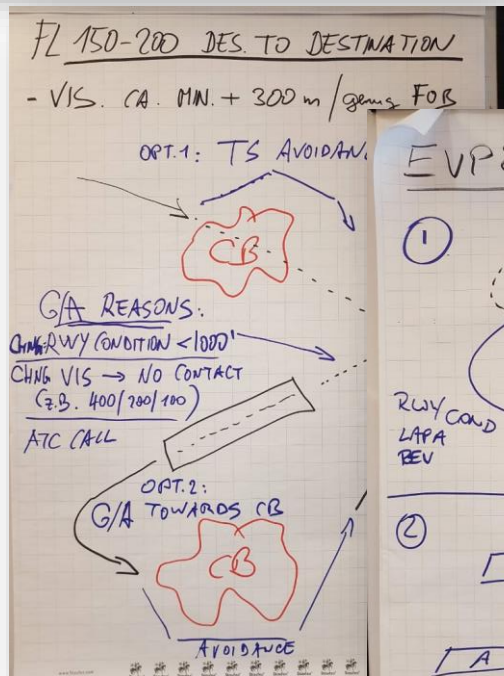 FL 150-200 DES. TO DESTINATION
- VIS. CA. MIN. + 300 m / genug FOB
OPT.1: TS AVOIDAN
CB
G/A REASONS:
CHNG RWY CONDITION <1000'
CHNG VIS → NO CONTACT
(Z.B. 400/200/100)
ATC CALL
OPT.2:
G/A TOWARDS CB
CB
AVOIDANCE
EVP
1
RWY COND
LAPA
BEV
2
A